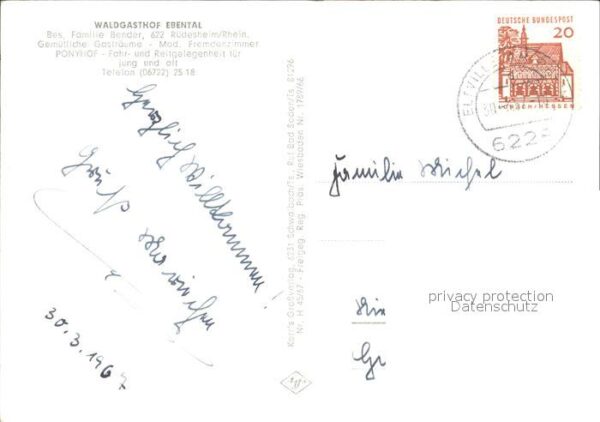 WALDGASTHOF EBENTAL
Bes. Familie Bender, 622 Rüdesheim/Rhein.
Gemütliche Gasträume - Mod. Fremdenzimmer
PONYHOF - Fahr- und Reitgelegenheit für
jung und alt
Telefon (06722) 25 18
Herzlich Willkommen!
Gruß
30.3.1967
Korr's Großverlag, 6231 Schwalbach/Ts., Ruf Bad Soden/Ts.
Nr. H 45/67 - Freigeg. Reg. Präs. Wiesbaden Nr.
DEUTSCHE BUNDESPOST
20
LORSCH/HESSEN
ELTVILLE
30.
622
Familie Michel
privacy protection
Datenschutz